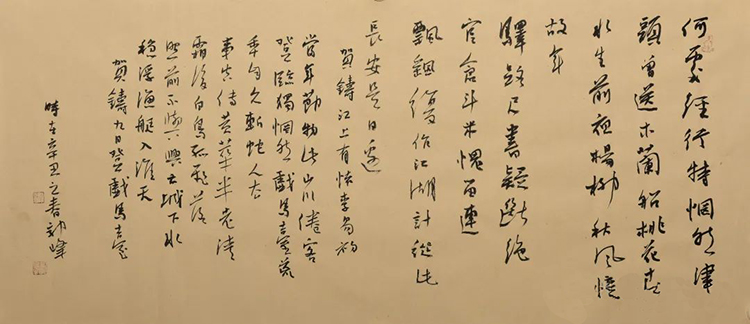 何處經行特惘然津
頭曾送木蘭船桃花春
水生前夜楊柳秋風憶
故年
驛路尺書疑斷絕
官倉斗米愧留連
飄飄謾作江湖計縱比
長安是日邊
賀鑄江上有懷李易初
當年節物此山川倦客
登臨獨惘然戲馬臺荒
年自久斬蛇人去
事空傳黃華半老清
霜後白鳥孤飛落
照前不與興亡城下水
穩浮漁艇入淮天
賀鑄九日登戲馬臺
時在辛丑之春峰